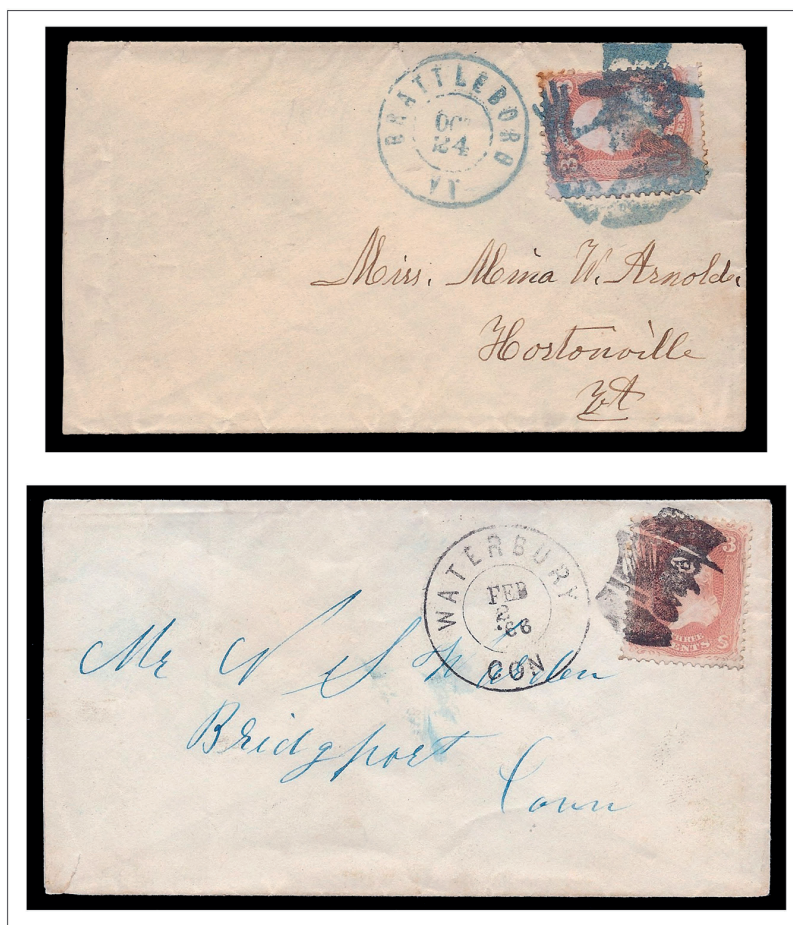 BRATTLEBORO
OCT
24
VT
3
Miss. Mina W. Arnold.
Hortonville
Vt
WATERBURY
FEB
2
'66
CON
3
THREE
CENTS
Mr N S
Bridgport
Conn